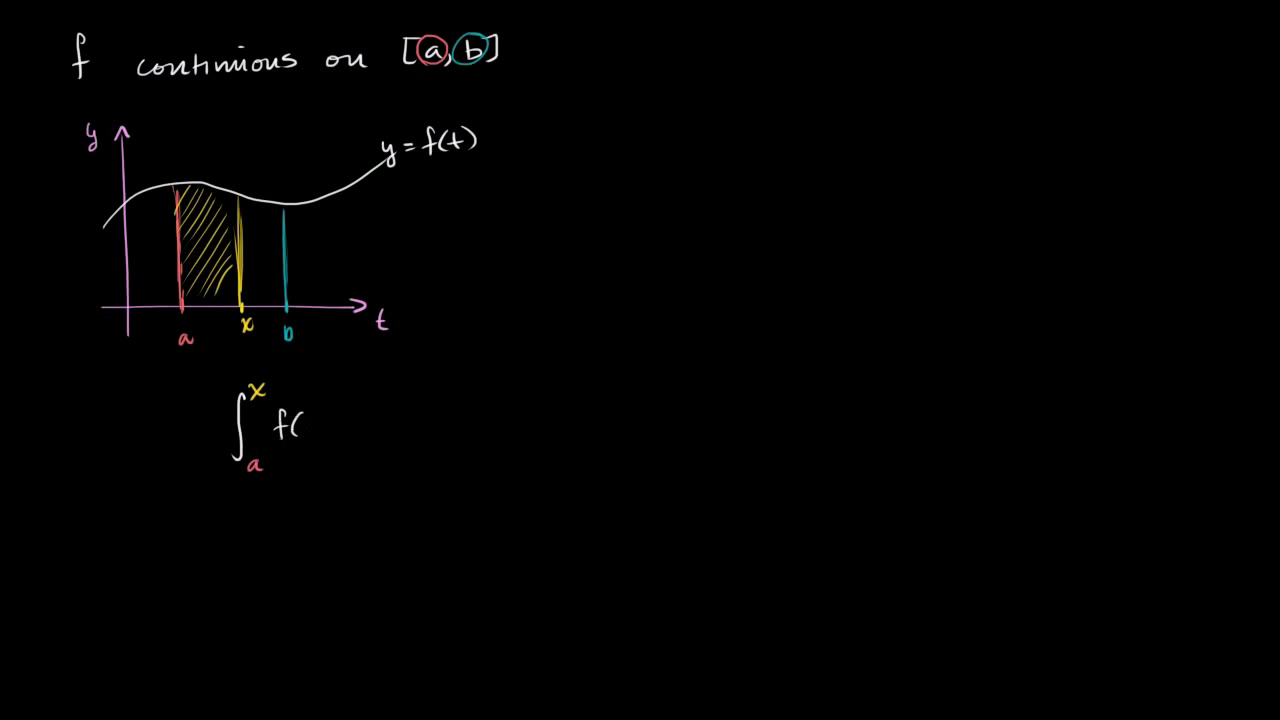 f continuous on [a,b]
y
y = f(t)
a x b t
∫ₐˣ f(